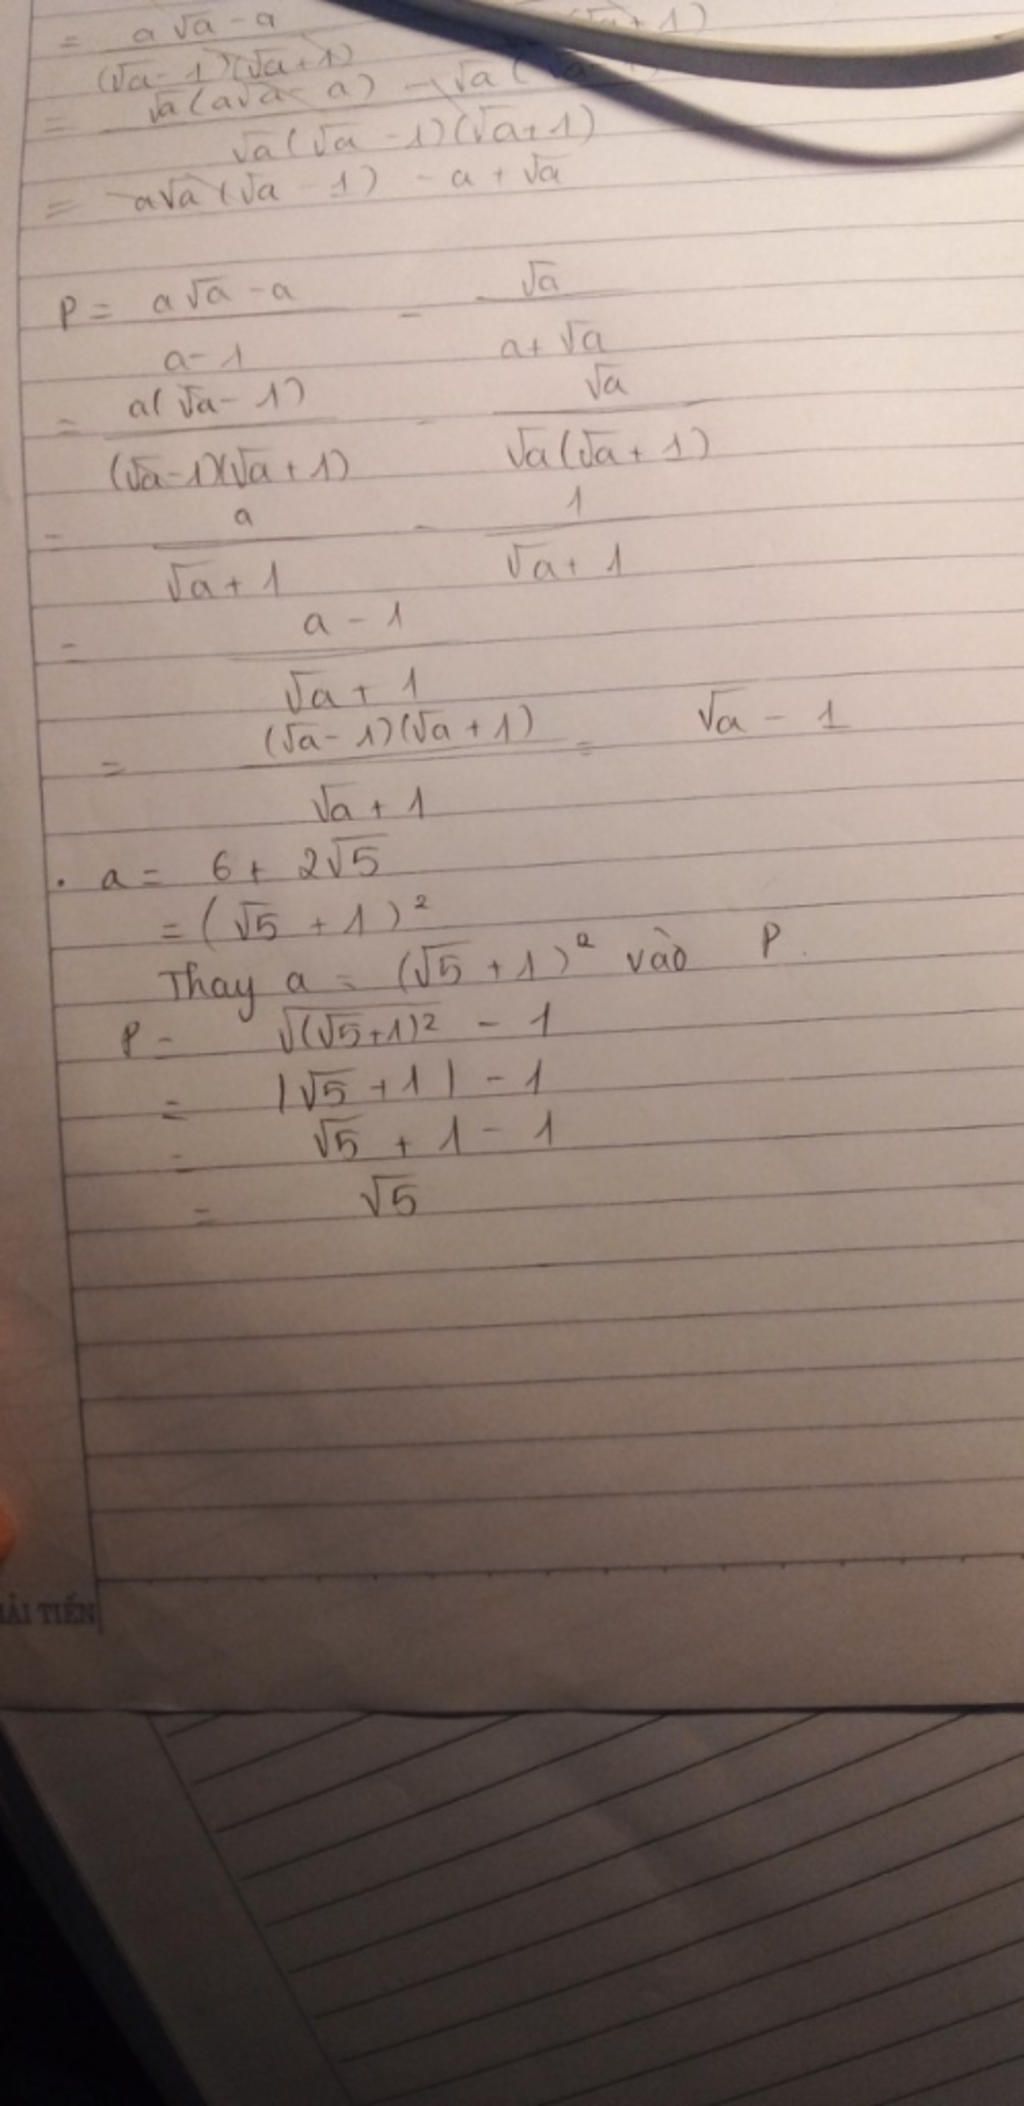 = a√a - a
(√a - 1)(√a + 1) + 1)
= √a(a√a - a) - √a(
√a(√a - 1)(√a + 1)
= a√a(√a - 1) - a + √a
P = a√a - a - √a
a - 1 a + √a
= a(√a - 1) - √a
(√a - 1)(√a + 1) √a(√a + 1)
= a - 1
√a + 1 √a + 1
= a - 1
√a + 1
= (√a - 1)(√a + 1) = √a - 1
√a + 1
. a = 6 + 2√5
= (√5 + 1)²
Thay a = (√5 + 1)² vào P.
P = √(√5+1)² - 1
= |√5 + 1| - 1
= √5 + 1 - 1
= √5
ẢI TIẾN